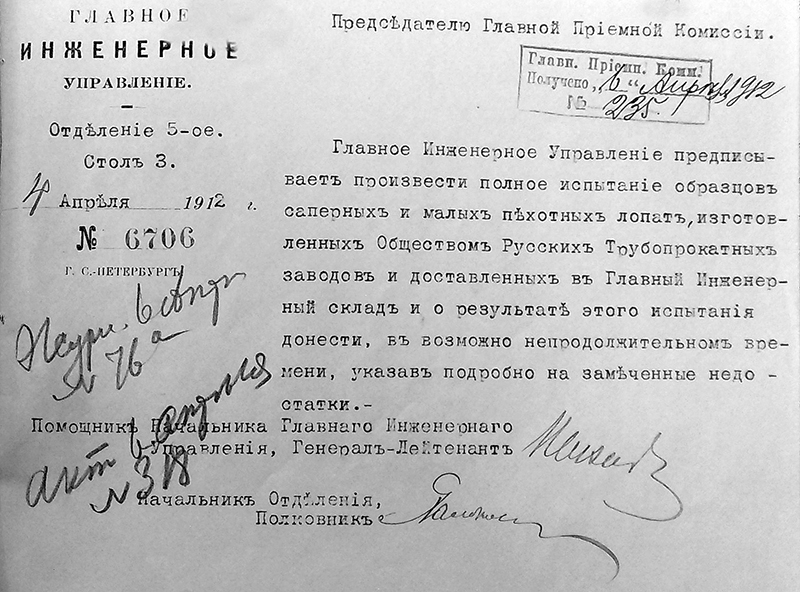 ГЛАВНОЕ
ИНЖЕНЕРНОЕ
УПРАВЛЕНІЕ.
Отдѣленіе 5-ое.
Столъ 3.
4 Апрѣля 1912 г.
№ 6706
Г. С.-ПЕТЕРБУРГЪ
Журн. 6 Апр
№ 76а
акт 6 апреля
№ 318
Предсѣдателю Главной Пріемной Комиссіи.
Главн. Пріемн. Комм.
Получено „6“ Апрѣля 1912
№ 235.
Главное Инженерное Управленіе предписы-
ваетъ произвести полное испытаніе образцовъ
саперныхъ и малыхъ пѣхотныхъ лопатъ,изготов-
ленныхъ Обществомъ Русскихъ Трубопрокатныхъ
заводовъ и доставленныхъ въ Главный Инженер-
ный складъ и о результатѣ этого испытанія
донести, въ возможно непродолжительномъ вре-
мени, указавъ подробно на замѣченные недо -
статки.-
Помощникъ Начальника Главнаго Инженернаго
Управленія, Генералъ-Лейтенантъ
Начальникъ Отдѣленія,
Полковникъ